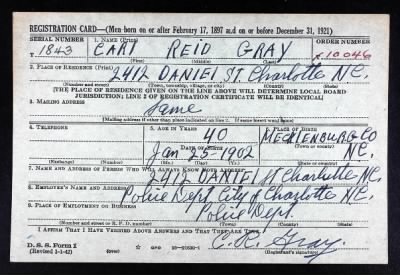 REGISTRATION CARD—(Men born on or after February 17, 1897 and on or before December 31, 1921)
SERIAL NUMBER 1. NAME (Print) ORDER NUMBER
1843 CARL REID GRAY 10046
(First) (Middle) (Last)
2. PLACE OF RESIDENCE (Print)
2412 DANIEL ST. Charlotte N.C.
(Number and street) (Town, township, village, or city) (County) (State)
[THE PLACE OF RESIDENCE GIVEN ON THE LINE ABOVE WILL DETERMINE LOCAL BOARD
JURISDICTION; LINE 2 OF REGISTRATION CERTIFICATE WILL BE IDENTICAL]
3. MAILING ADDRESS
Same
[Mailing address if other than place indicated on line 2. If same insert word same]
4. TELEPHONE 5. AGE IN YEARS 6. PLACE OF BIRTH
40 MECKLENBURG CO
DATE OF BIRTH (Town or county)
Jan 25-1902 N.C.
(Exchange) (Number) (Mo.) (Day) (Yr.) (State or country)
7. NAME AND ADDRESS OF PERSON WHO WILL ALWAYS KNOW YOUR ADDRESS
2412 DANIEL St Charlotte N.C.
8. EMPLOYER'S NAME AND ADDRESS
Police Dept. City of Charlotte N.C.
9. PLACE OF EMPLOYMENT OR BUSINESS
Police Dept.
(Number and street or R. F. D. number) (Town) (County) (State)
I AFFIRM THAT I HAVE VERIFIED ABOVE ANSWERS AND THAT THEY ARE TRUE.
C. R. Gray
D. S. S. Form 1
(Revised 1-1-42) GPO 16-21630-1 (Registrant's signature)